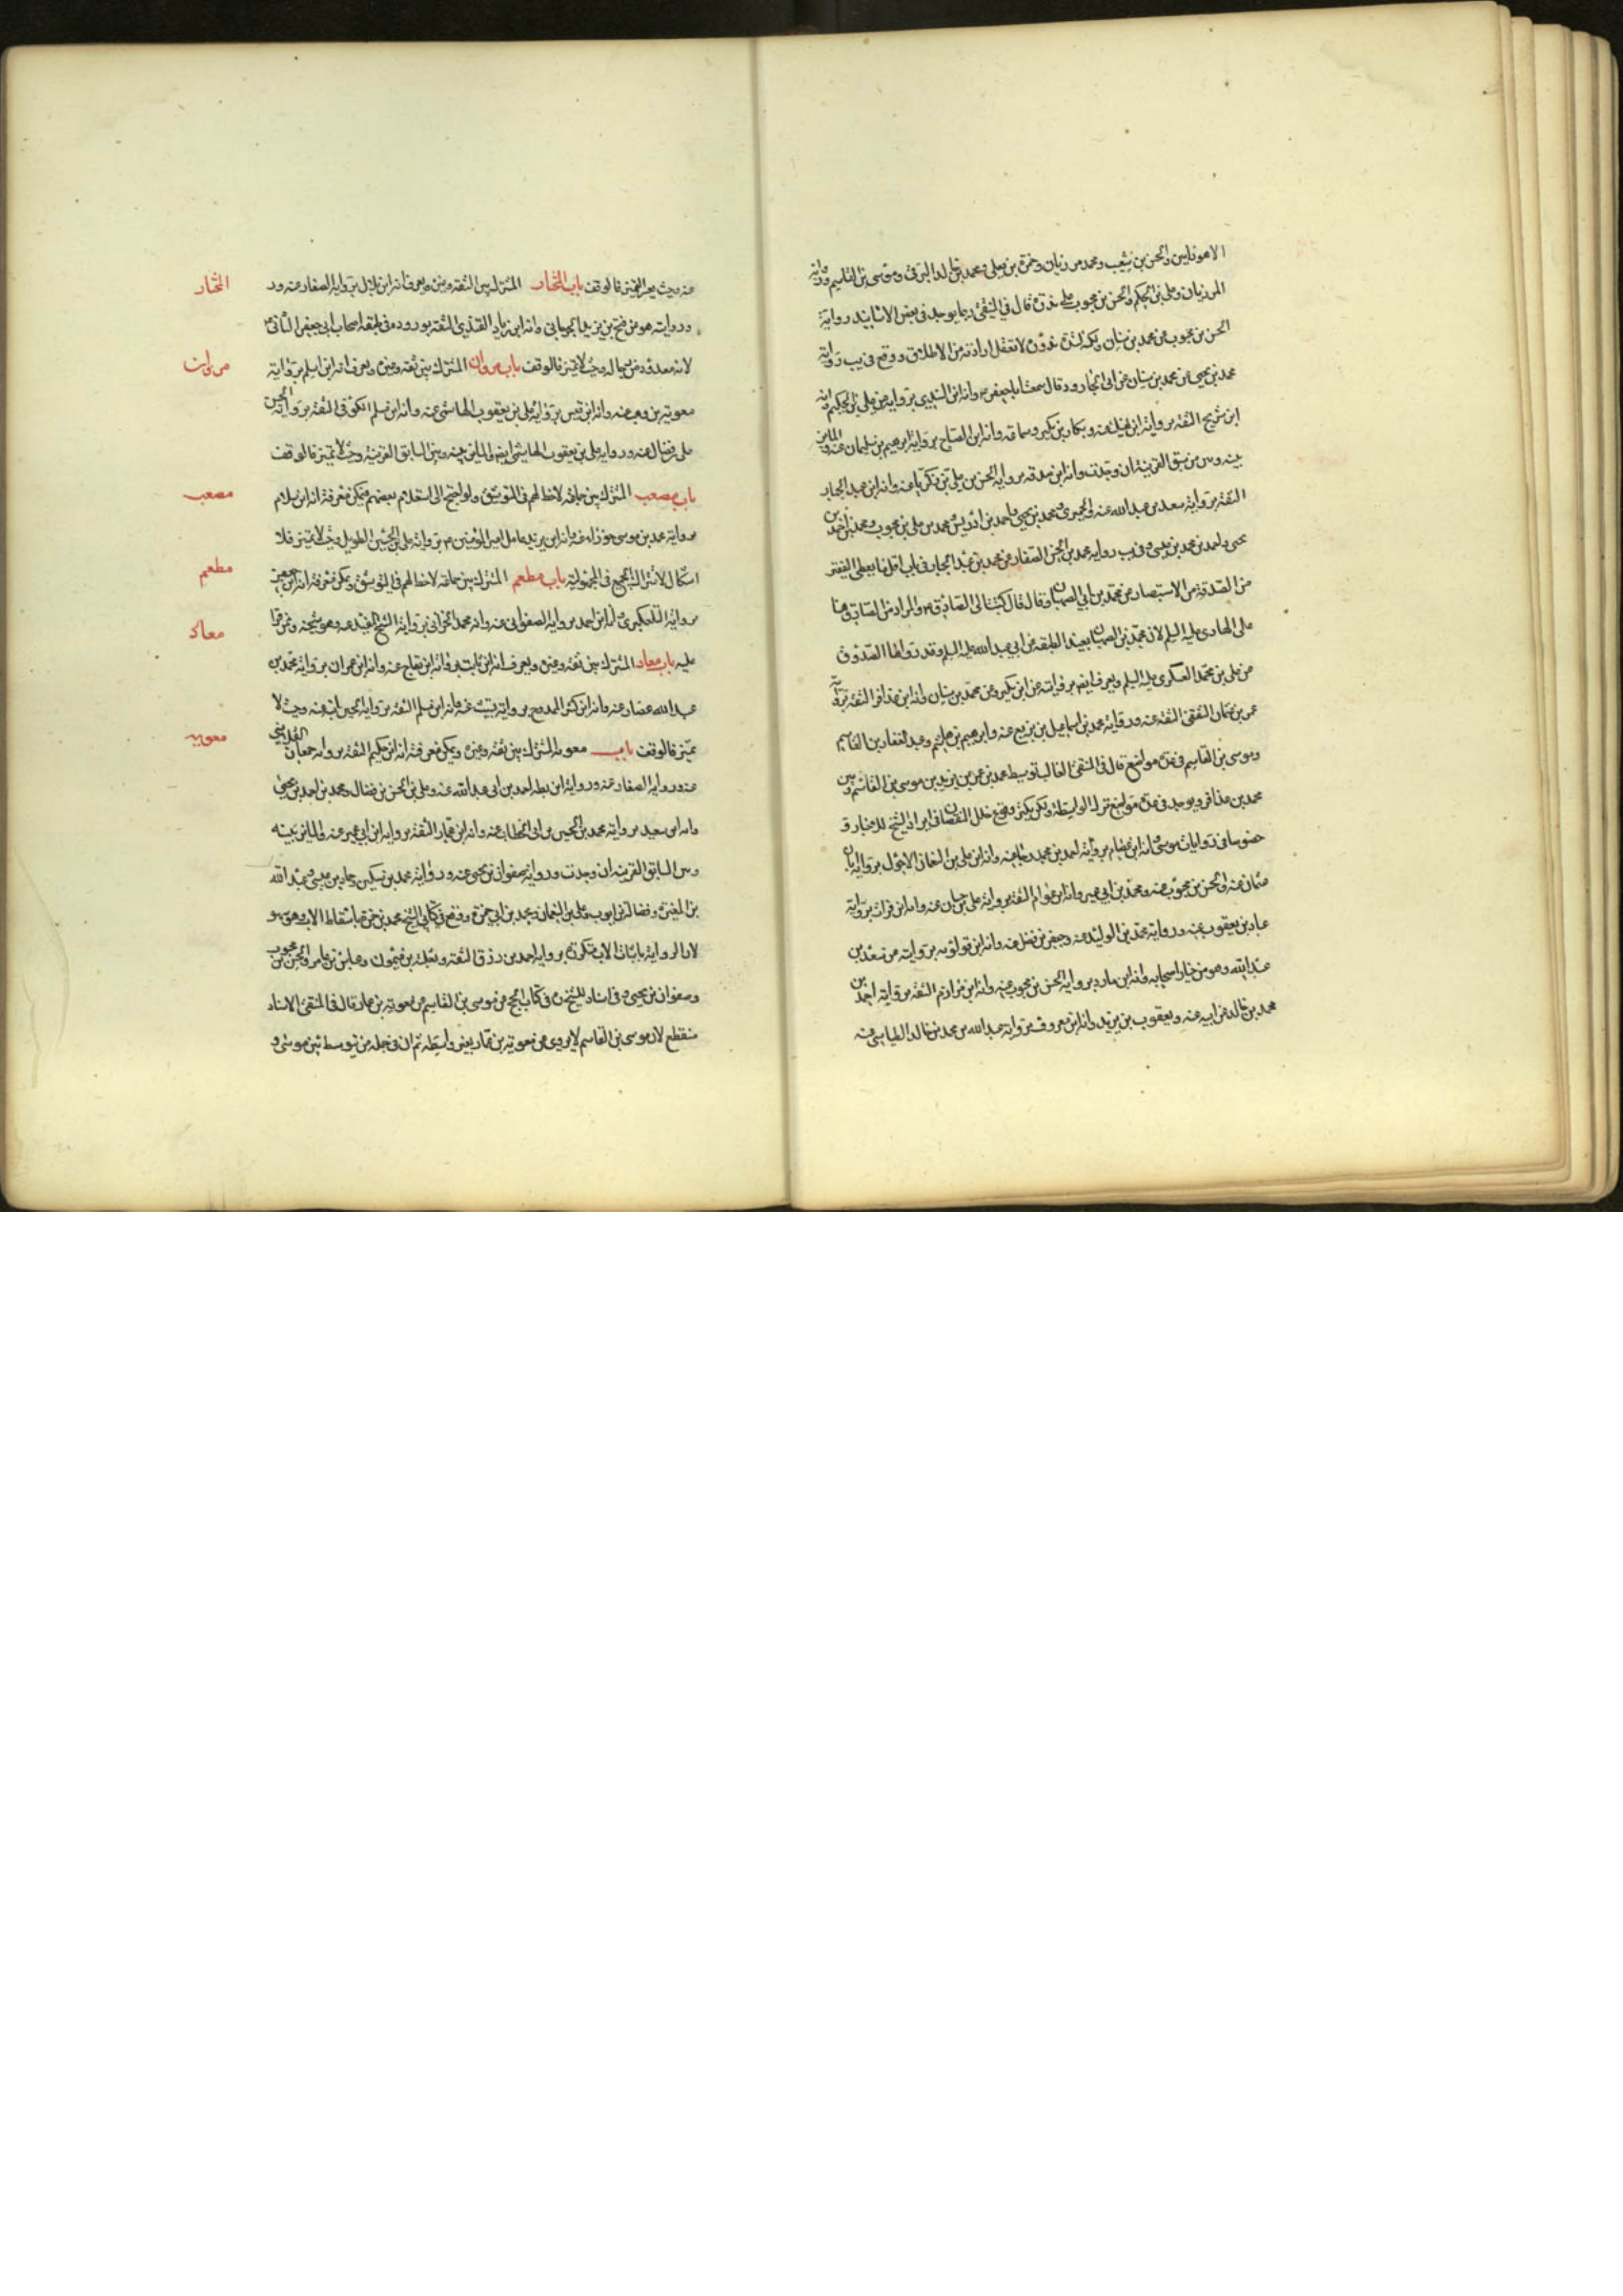 الاهوازيين والحسن بن شعيب ومحمد بن مرزبان وحمزة بن يعلى ومحمد بن خالد البرقي وموسى بن القاسم ورواية
المرزبان وعلى بن الحكم والحسن بن محبوب على قال في المنتقى ربما يوجد في بعض الاسانيد رواية
الحسن بن محبوب عن محمد بن سنان ارادته من الاطلاق ووقع في يب رواية
محمد بن يحيى عن محمد بن سنان عن ابي الجارود قال سمعت ابا جعفر وانه ابن برواية علي بن الحكم وانه
ابن شريح الثقة برواية عنه وبكار بن بكير وسماعة وانه ابن الصباح برواية ابرهيم بن سليمان عنه والمايز
بينه وبين من سبق القرينة ان وجدت وانه ابن صدقه برواية الحسن بن علي بن زكريا عنه وانه ابن عبد الجبار
الثقة برواية سعد بن عبد الله عنه والحميري ومحمد بن يحيى واحمد بن ادريس ومحمد بن علي بن محبوب ومحمد بن احمد بن
يحيى واحمد بن محمد بن عيسى وفي يب رواية محمد بن الحسن الصفار عن محمد بن عبد الجبار في باب اقل ما يعطى الفقير
من الصدقة من الاستبصار عن محمد بن ابي الصهبان قال قال كتبت الى الصادق والمراد من الصادق هنا
علي الهادي عليه السلم لان محمد بن ابي الصهبان بعيد الطبقة عن ابي عبد الله عليه السلم وقد رواها الصدوق
عن علي بن محمد العسكري عليه السلم ويعرف ايضا بروايته عن ابن بكير وعن محمد بن سنان وانه ابن عذافر الثقة برواية
عمر بن عثمان الثقفي الثقة عنه ورواية محمد بن اسماعيل بن بزيع عنه وابرهيم بن هاشم وعبد الغفار بن القاسم
وموسى بن القاسم في عدة مواضع قال في المنتقى الغالب توسط محمد بن عمر بن يزيد بين موسى بن القاسم وبين
محمد بن عذافر ويوجد في عدة مواضع ترك الواسطة ولكن يكثر وقوع خلل النقصان في ايراد الشيخ للاخبار و
خصوصا في روايات موسى وانه ابن عصام برواية احمد بن محمد عنه وانه ابن علي بن النعمان الاحول برواية ابان
عثمان عنه والحسن بن محبوب عنه ومحمد بن ابي عمير وانه ابن عوام الثقة برواية علي بن حسان عنه وانه ابن فرات برواية
عباد بن يعقوب عنه ورواية محمد بن الوليد عنه وجعفر بن فضل عنه وانه ابن قولويه بروايته عن سعد بن
عبد الله وهو من خيار اصحابه وانه ابن مارد برواية الحسن بن محبوب عنه وانه ابن مرازم الثقة برواية احمد بن
محمد بن خالد عن ابيه عنه ويعقوب بن يزيد وانه ابن معروف برواية عبد الله بن محمد بن خالد الطيالسي عنه
عنه وحيث يعسر التميز فالوقف باب المختار المشترك بين الثقة وغيره ويعرف انه ابن بلال برواية الصفار عنه ورد
وروايته هو عن فتح بن يزيد الجرجاني وانه ابن زياد العبدي الثقة بوروده في طبقة اصحاب ابي جعفر الثاني
لانه معدود من رجاله وحيث لا تميز فالوقف باب مروان المشترك بين ثقة وغيره ويعرف انه ابن مسلم برواية
معوية بن وهب عنه وانه ابن قيس برواية علي بن يعقوب الهاشمي عنه وانه ابن مسلم الكوفي الثقة برواية الحسن
علي بن فضال عنه ورواية علي بن يعقوب الهاشمي ايضا والمايز بينه وبين السابق القرينة وحيث لا تميز فالوقف
باب مصعب المشترك بين جماعة لاحظ لهم في التوثيق ولو احتيج الى استعلام بعضهم فيمكن معرفة انه ابن سلام
برواية محمد بن موسى عنه وانه ابن يزيد عامل امير المؤمنين برواية علي بن الحسين الطويل وحيث لا تميز فلا
اشكال لاشتراك الجميع في المجهولية باب مطعم المشترك بين جماعة لاحظ لهم في التوثيق ويمكن معرفة انه ابن
برواية التلعكبري وانه ابن احمد برواية الصفواني عنه وانه محمد الحراني برواية الشيخ المفيد عنه وهو شيخه وممن قرأ
عليه باب معاذ المشترك بين ثقة وغيره ويعرف انه ابن ثابت برواية ابن عنه وانه ابن عمران برواية محمد بن
عبد الله عنه وانه ابن كثير الممدوح برواية عنه وانه ابن مسلم الثقة برواية الحسين ابنه عنه وحيث لا
تميز فالوقف باب معوية المشترك بين ثقة وغيره ويمكن معرفة انه ابن حكيم الثقة برواية حمدان القلانسي
عنه ورواية الصفار عنه ورواية ابن بطه احمد بن ابي عبد الله عنه وعلي بن الحسن بن فضال ومحمد بن احمد بن يحيى
وانه ابن سعيد برواية محمد بن الحسين بن ابي الخطاب عنه وانه ابن عمار الثقة برواية ابن ابي عمير عنه والمايز بينه
وبين السابق القرينة ان وجدت ورواية صفوان بن يحيى عنه ورواية محمد بن سكين وحماد بن عيسى وعبد الله
بن المغيرة وفضالة بن ايوب وعلي بن النعمان ومحمد بن ابي حمزة ووقع في كتابي الشيخ محمد بن حمزة باسقاط الاب وهو سهو
لان الرواية باثبات الاب متكررة برواية احمد بن رزق الثقة وثعلبة بن ميمون وعباس بن عامر والحسن بن محبوب
وصفوان بن يحيى وفي اسناد للشيخ في كتاب الحج عن موسى بن القاسم عن معوية بن عمار قال في المنتقى الاسناد
منقطع لان موسى بن القاسم لا يروي عن معوية بن عمار بغير واسطة ثم ان في جملة من توسط بين موسى و
المختار
مروان
مصعب
مطعم
معاذ
معوية